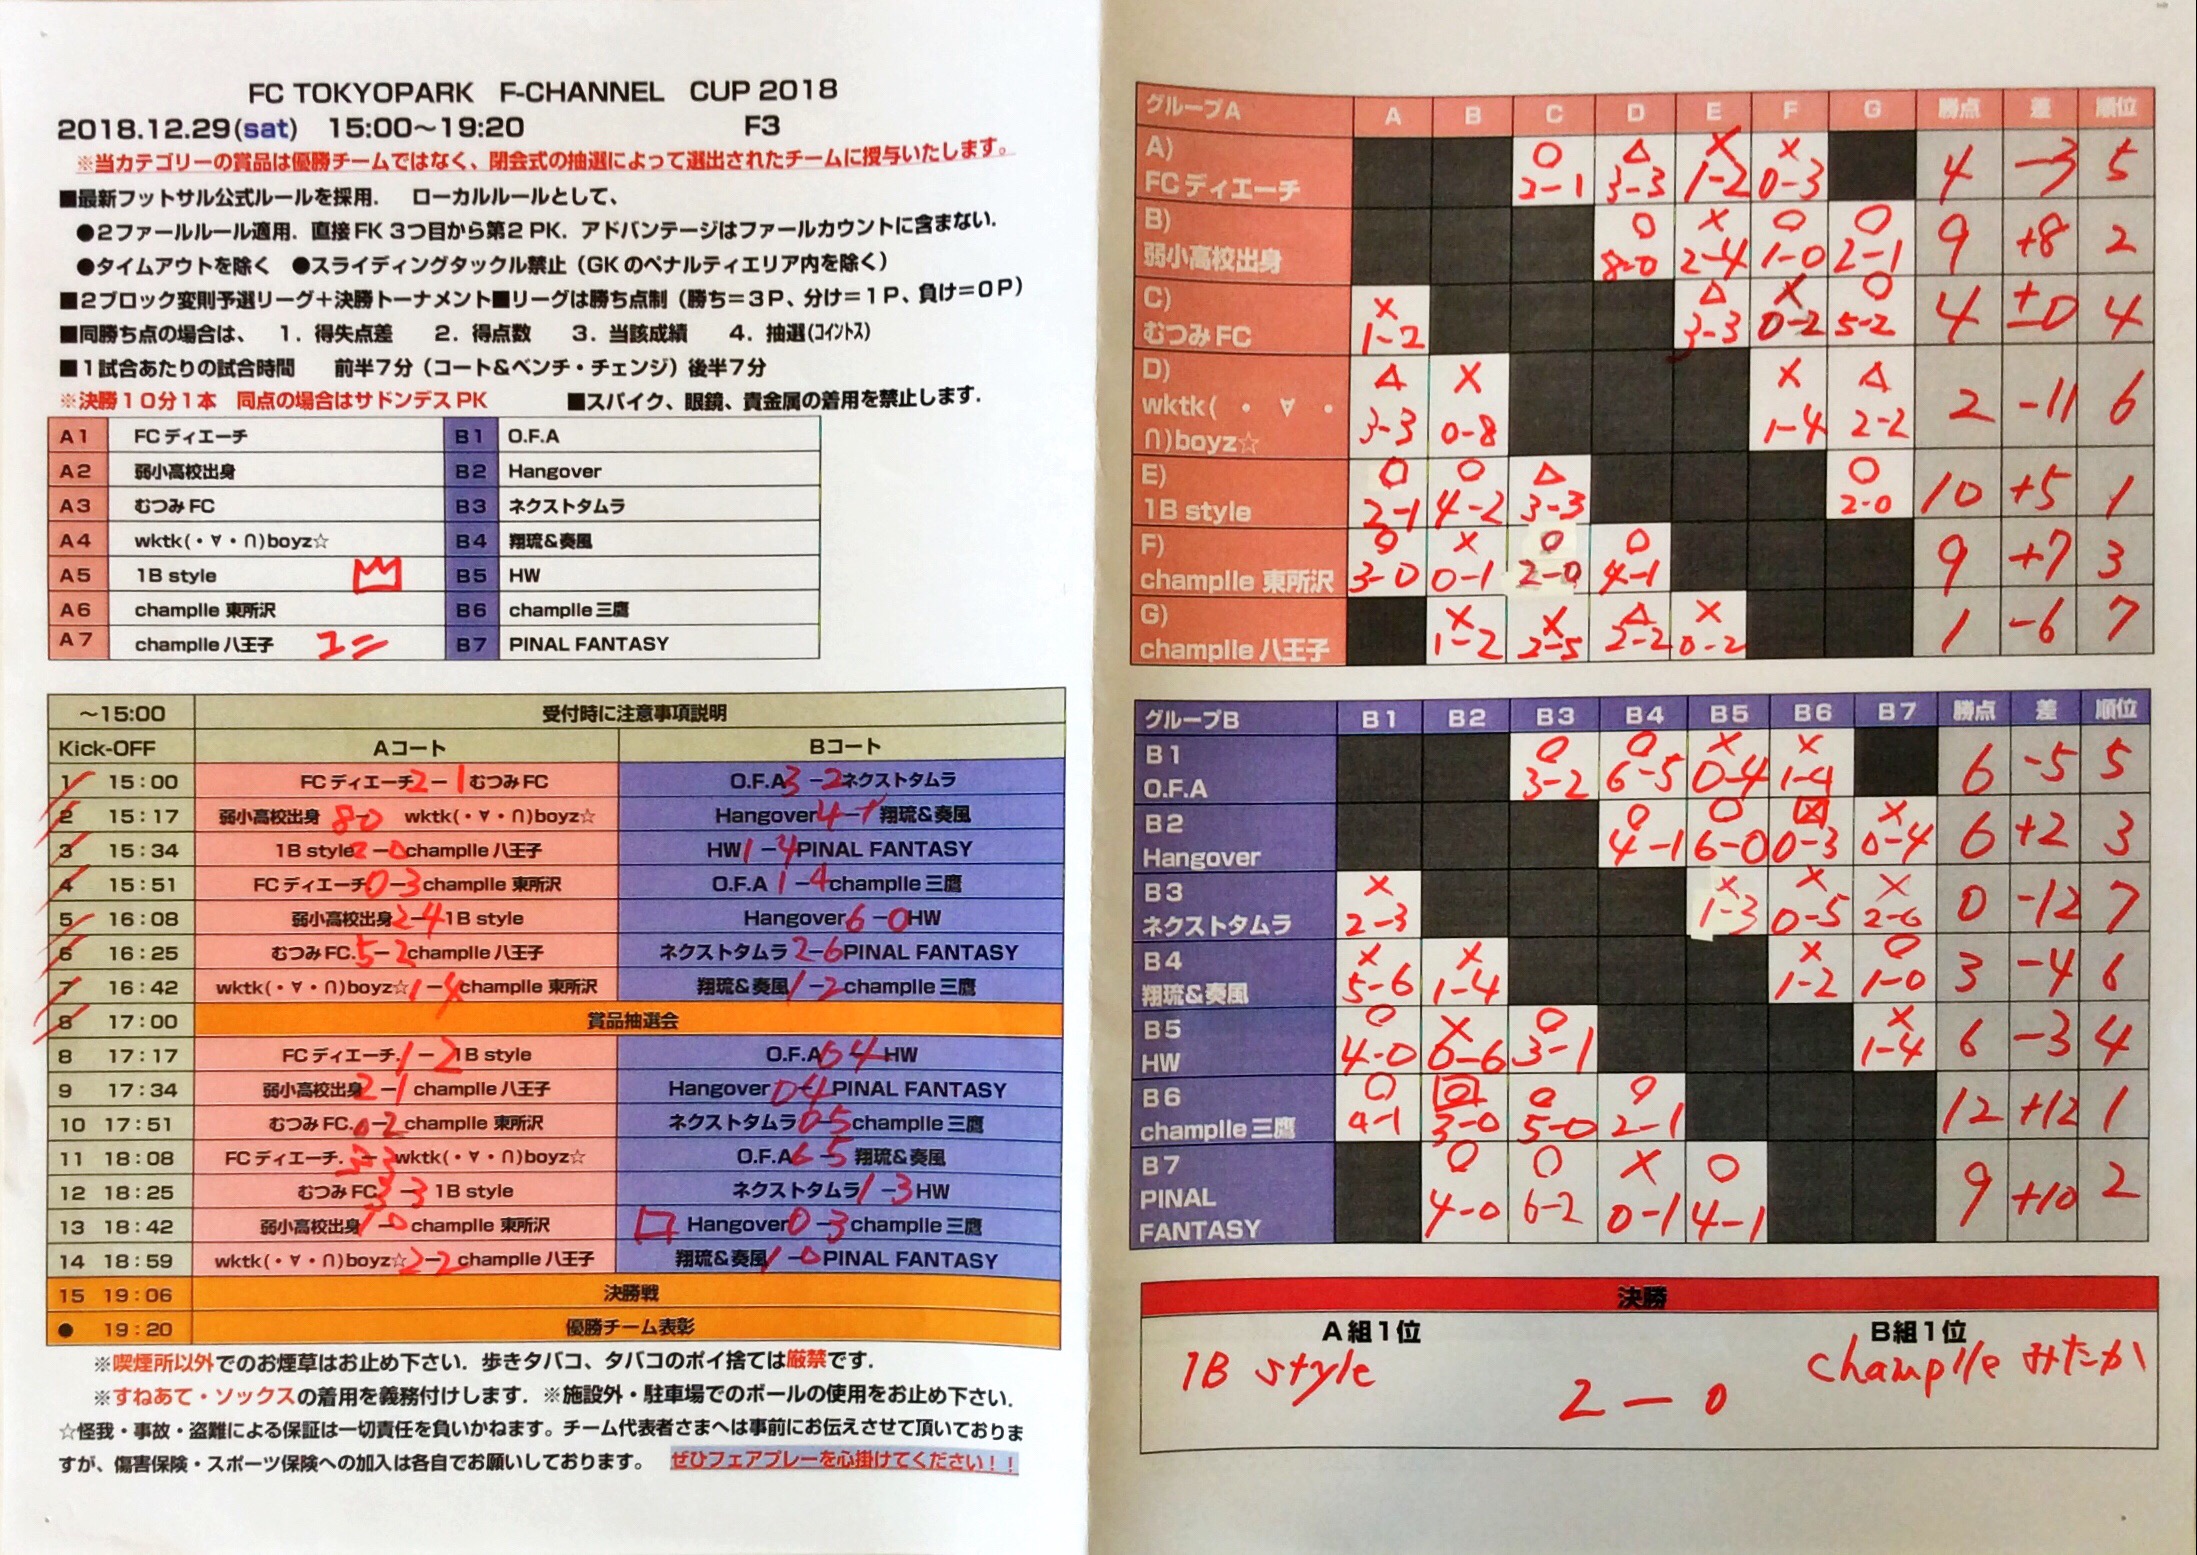 FC TOKYOPARK F-CHANNEL CUP 2018
2018.12.29(sat) 15:00～19:20 F3
※当カテゴリーの賞品は優勝チームではなく、閉会式の抽選によって選出されたチームに授与いたします。
■最新フットサル公式ルールを採用. ローカルルールとして、
●2ファールルール適用. 直接FK 3つ目から第2 PK. アドバンテージはファールカウントに含まない.
●タイムアウトを除く ●スライディングタックル禁止（GKのペナルティエリア内を除く）
■2ブロック変則予選リーグ＋決勝トーナメント■リーグは勝ち点制（勝ち＝3P、分け＝1P、負け＝0P）
■同勝ち点の場合は、 1. 得失点差 2. 得点数 3. 当該成績 4. 抽選(コイントス)
■1試合あたりの試合時間 前半7分（コート&ベンチ・チェンジ）後半7分
※決勝10分1本 同点の場合はサドンデスPK ■スパイク、眼鏡、貴金属の着用を禁止します.
A1 FCディエーチ B1 O.F.A
A2 弱小高校出身 B2 Hangover
A3 むつみFC B3 ネクストタムラ
A4 wktk(・∀・∩)boyz☆ B4 翔琉&奏風
A5 1B style B5 HW
A6 champlle 東所沢 B6 champlle三鷹
A7 champlle八王子 B7 PINAL FANTASY
～15:00 受付時に注意事項説明
Kick-OFF Aコート Bコート
1 15:00 FCディエーチ 2-1 むつみFC O.F.A 3-2 ネクストタムラ
2 15:17 弱小高校出身 8-0 wktk(・∀・∩)boyz☆ Hangover 4-1 翔琉&奏風
3 15:34 1B style 2-0 champlle八王子 HW 1-4 PINAL FANTASY
4 15:51 FCディエーチ. 0-3 champlle 東所沢 O.F.A 1-4 champlle三鷹
5 16:08 弱小高校出身 2-4 1B style Hangover 6-0 HW
6 16:25 むつみFC. 5-2 champlle八王子 ネクストタムラ 2-6 PINAL FANTASY
7 16:42 wktk(・∀・∩)boyz☆ 1-4 champlle 東所沢 翔琉&奏風 1-2 champlle三鷹
8 17:00 賞品抽選会
8 17:17 FCディエーチ. 1-2 1B style O.F.A 0 4 HW
9 17:34 弱小高校出身 2-1 champlle八王子 Hangover 0-4 PINAL FANTASY
10 17:51 むつみFC. 0-2 champlle 東所沢 ネクストタムラ 0-5 champlle三鷹
11 18:08 FCディエーチ. 3-3 wktk(・∀・∩)boyz☆ O.F.A 6-5 翔琉&奏風
12 18:25 むつみFC 3-3 1B style ネクストタムラ 1-3 HW
13 18:42 弱小高校出身 1-0 champlle 東所沢 Hangover 0-3 champlle三鷹
14 18:59 wktk(・∀・∩)boyz☆ 2-2 champlle八王子 翔琉&奏風 1-0 PINAL FANTASY
15 19:06 決勝戦
● 19:20 優勝チーム表彰
※喫煙所以外でのお煙草はお止め下さい. 歩きタバコ、タバコのポイ捨ては厳禁です.
※すねあて・ソックスの着用を義務付けします. ※施設外・駐車場でのボールの使用をお止め下さい.
☆怪我・事故・盗難による保証は一切責任を負いかねます。チーム代表者さまへは事前にお伝えさせて頂いておりま
すが、傷害保険・スポーツ保険への加入は各自でお願いしております。 ぜひフェアプレーを心掛けてください！！
グループA A B C D E F G 勝点 差 順位
A) ○ △ × ×
FCディエーチ 2-1 3-3 1-2 0-3 4 -3 5
B) ○ × ○ ○
弱小高校出身 8-0 2-4 1-0 2-1 9 +8 2
C) × △ × ○
むつみFC 1-2 3-3 0-2 5-2 4 ±0 4
D) △ × × △
wktk(・∀・
∩)boyz☆ 3-3 0-8 1-4 2-2 2 -11 6
E) ○ ○ △ ○
1B style 2-1 4-2 3-3 2-0 10 +5 1
F) ○ × ○ ○
champlle 東所沢 3-0 0-1 2-0 4-1 9 +7 3
G) × × △ ×
champlle八王子 1-2 2-5 2-2 0-2 1 -6 7
グループB B1 B2 B3 B4 B5 B6 B7 勝点 差 順位
B1 ○ ○ × ×
O.F.A 3-2 6-5 0-4 1-4 6 -5 5
B2 ○ ○ × ×
Hangover 4-1 6-0 0-3 0-4 6 +2 3
B3 × × × ×
ネクストタムラ 2-3 1-3 0-5 2-6 0 -12 7
B4 × × × ○
翔琉&奏風 5-6 1-4 1-2 1-0 3 -4 6
B5 ○ × ○ ×
HW 4-0 0-6 3-1 1-4 6 -3 4
B6 ○ ○ ○ ○
champlle三鷹 4-1 3-0 5-0 2-1 12 +12 1
B7 ○ ○ × ○
PINAL
FANTASY 4-0 6-2 0-1 4-1 9 +10 2
決勝
A組1位 B組1位
1B style champlle みたか
2-0